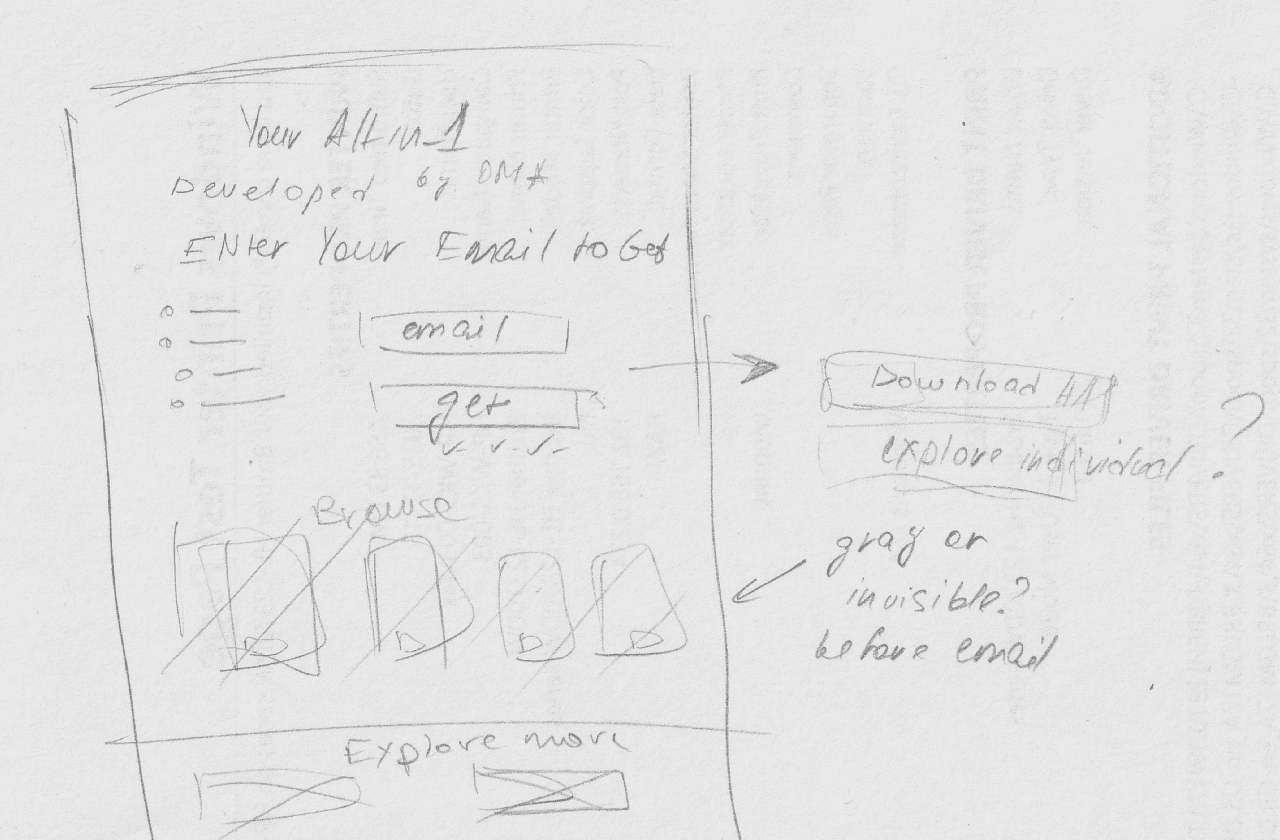 Your All-in-1
Developed by DMA
Enter Your Email to Get
email
get
Browse
D D D D
Explore more
Download All
explore individual ?
gray or
invisible?
before email